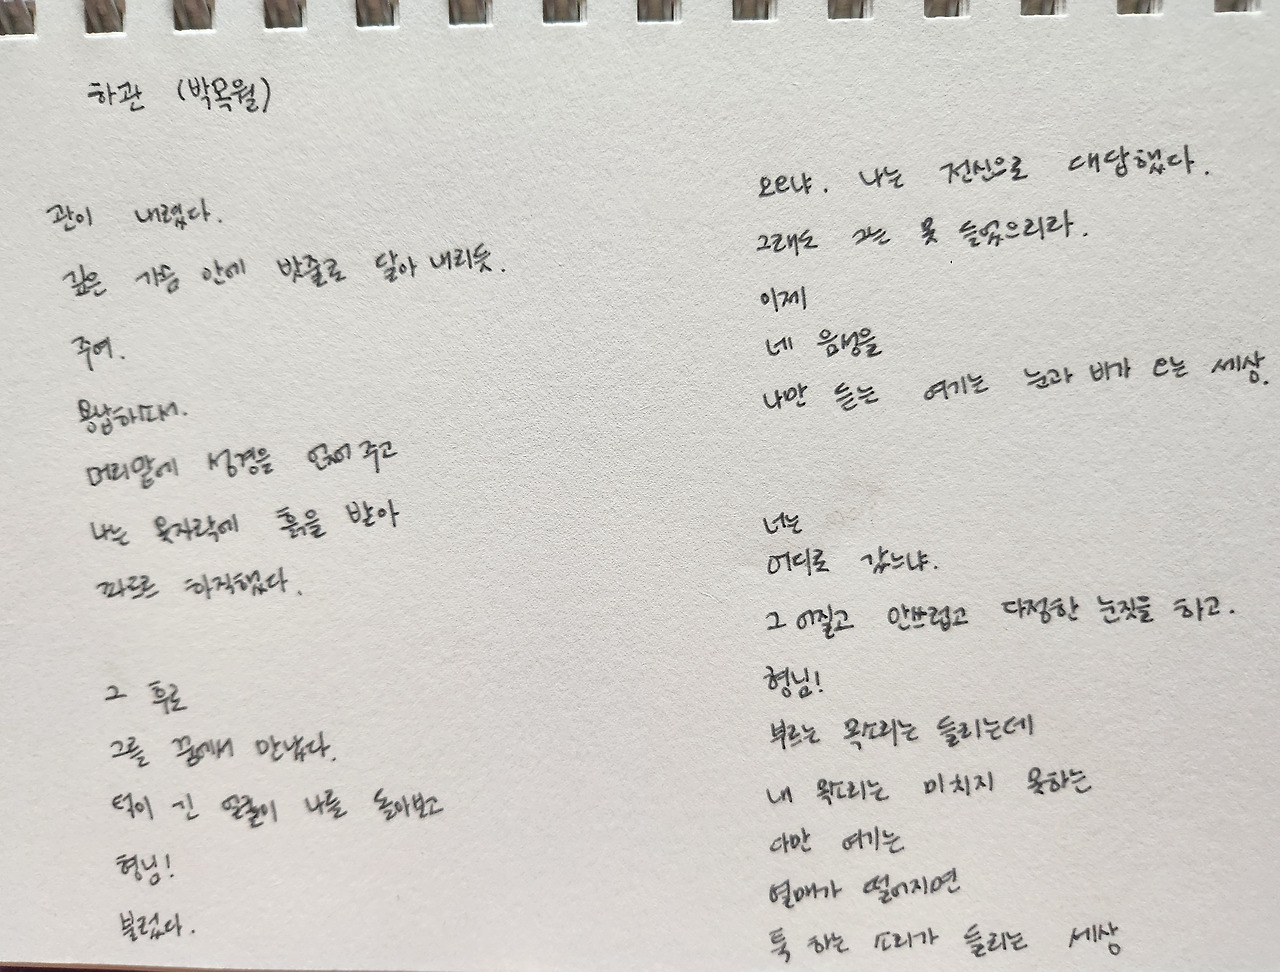 하관 (박목월)
관이 내렸다.
깊은 가슴 안에 밧줄로 달아 내리듯.
주여.
용납하따서.
머리맡에 성경을 얹어 주고
나는 옷자락에 흙을 받아
좌르르 하직했다.
그 후로
그를 꿈에서 만났다.
턱이 긴 얼굴이 나를 돌아보고
형님!
불렀다.
오오냐. 나는 전신으로 대답했다.
그래도 그는 못 들었으리라.
이제
네 음성을
나만 듣는 여기는 눈과 비가 오는 세상.
너는
어디로 갔느냐.
그 어질고 안쓰럽고 다정한 눈짓을 하고.
형님!
부르는 목소리는 들리는데
내 목소리는 미치지 못하는
다만 여기는
열매가 떨어지면
툭 하는 소리가 들리는 세상